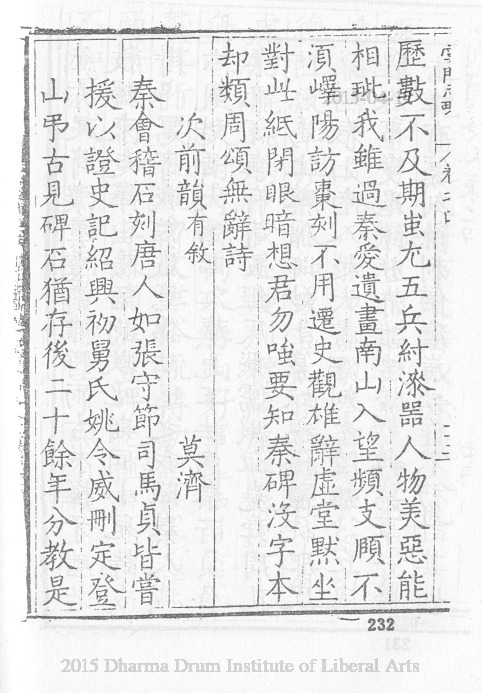 雲門志略 卷之四
歷數不及期蚩尤五兵紂漆噐人物美惡能
相玭我雖過秦愛遺畫南山入望頻支頥不
湏嶧陽訪棗刻不用遷史觀雄辭虛堂黙坐
對此紙閉眼暗想君勿嗤要知秦碑没字本
却類周頌無辭詩
次前韻有敘 莫濟
秦會稽石刻唐人如張守節司馬貞皆嘗
援以證史記紹興初舅氏姚令威刪定登
山弔古見碑石猶存後二十餘年分教是
232
2015 Dharma Drum Institute of Liberal Arts